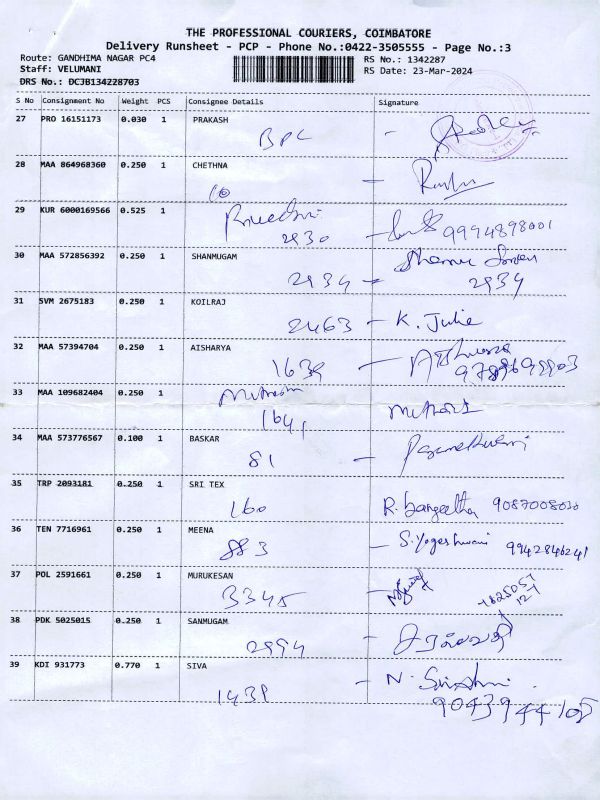 THE PROFESSIONAL COURIERS, COIMBATORE
Delivery Runsheet - PCP - Phone No.:0422-3505555 - Page No.:3
Route: GANDHIMA NAGAR PC4 RS No.: 1342287
Staff: VELUMANI RS Date: 23-Mar-2024
DRS No.: DCJB134228703
S No Consignment No Weight PCS Consignee Details Signature
27 PRO 16151173 0.030 1 PRAKASH
BPC -
28 MAA 864968360 0.250 1 CHETHNA
10 -
29 KUR 6000169566 0.525 1
2930 - 9994898001
30 MAA 572856392 0.250 1 SHANMUGAM
2934 - 2934
31 SVM 2675183 0.250 1 KOILRAJ
2463 - K. Julie
32 MAA 57394704 0.250 1 AISHARYA
1639 -
33 MAA 109682404 0.250 1
1641
34 MAA 573776567 0.100 1 BASKAR
81 -
35 TRP 2093181 0.250 1 SRI TEX
160 R. Sangeetha 9087008020
36 TEN 7716961 0.250 1 MEENA
883 - S. Yogeshwari 9942846241
37 POL 2591661 0.250 1 MURUKESAN
3345 -
38 PDK 5025015 0.250 1 SANMUGAM
2994 -
39 KDI 931773 0.770 1 SIVA
1438 - N.